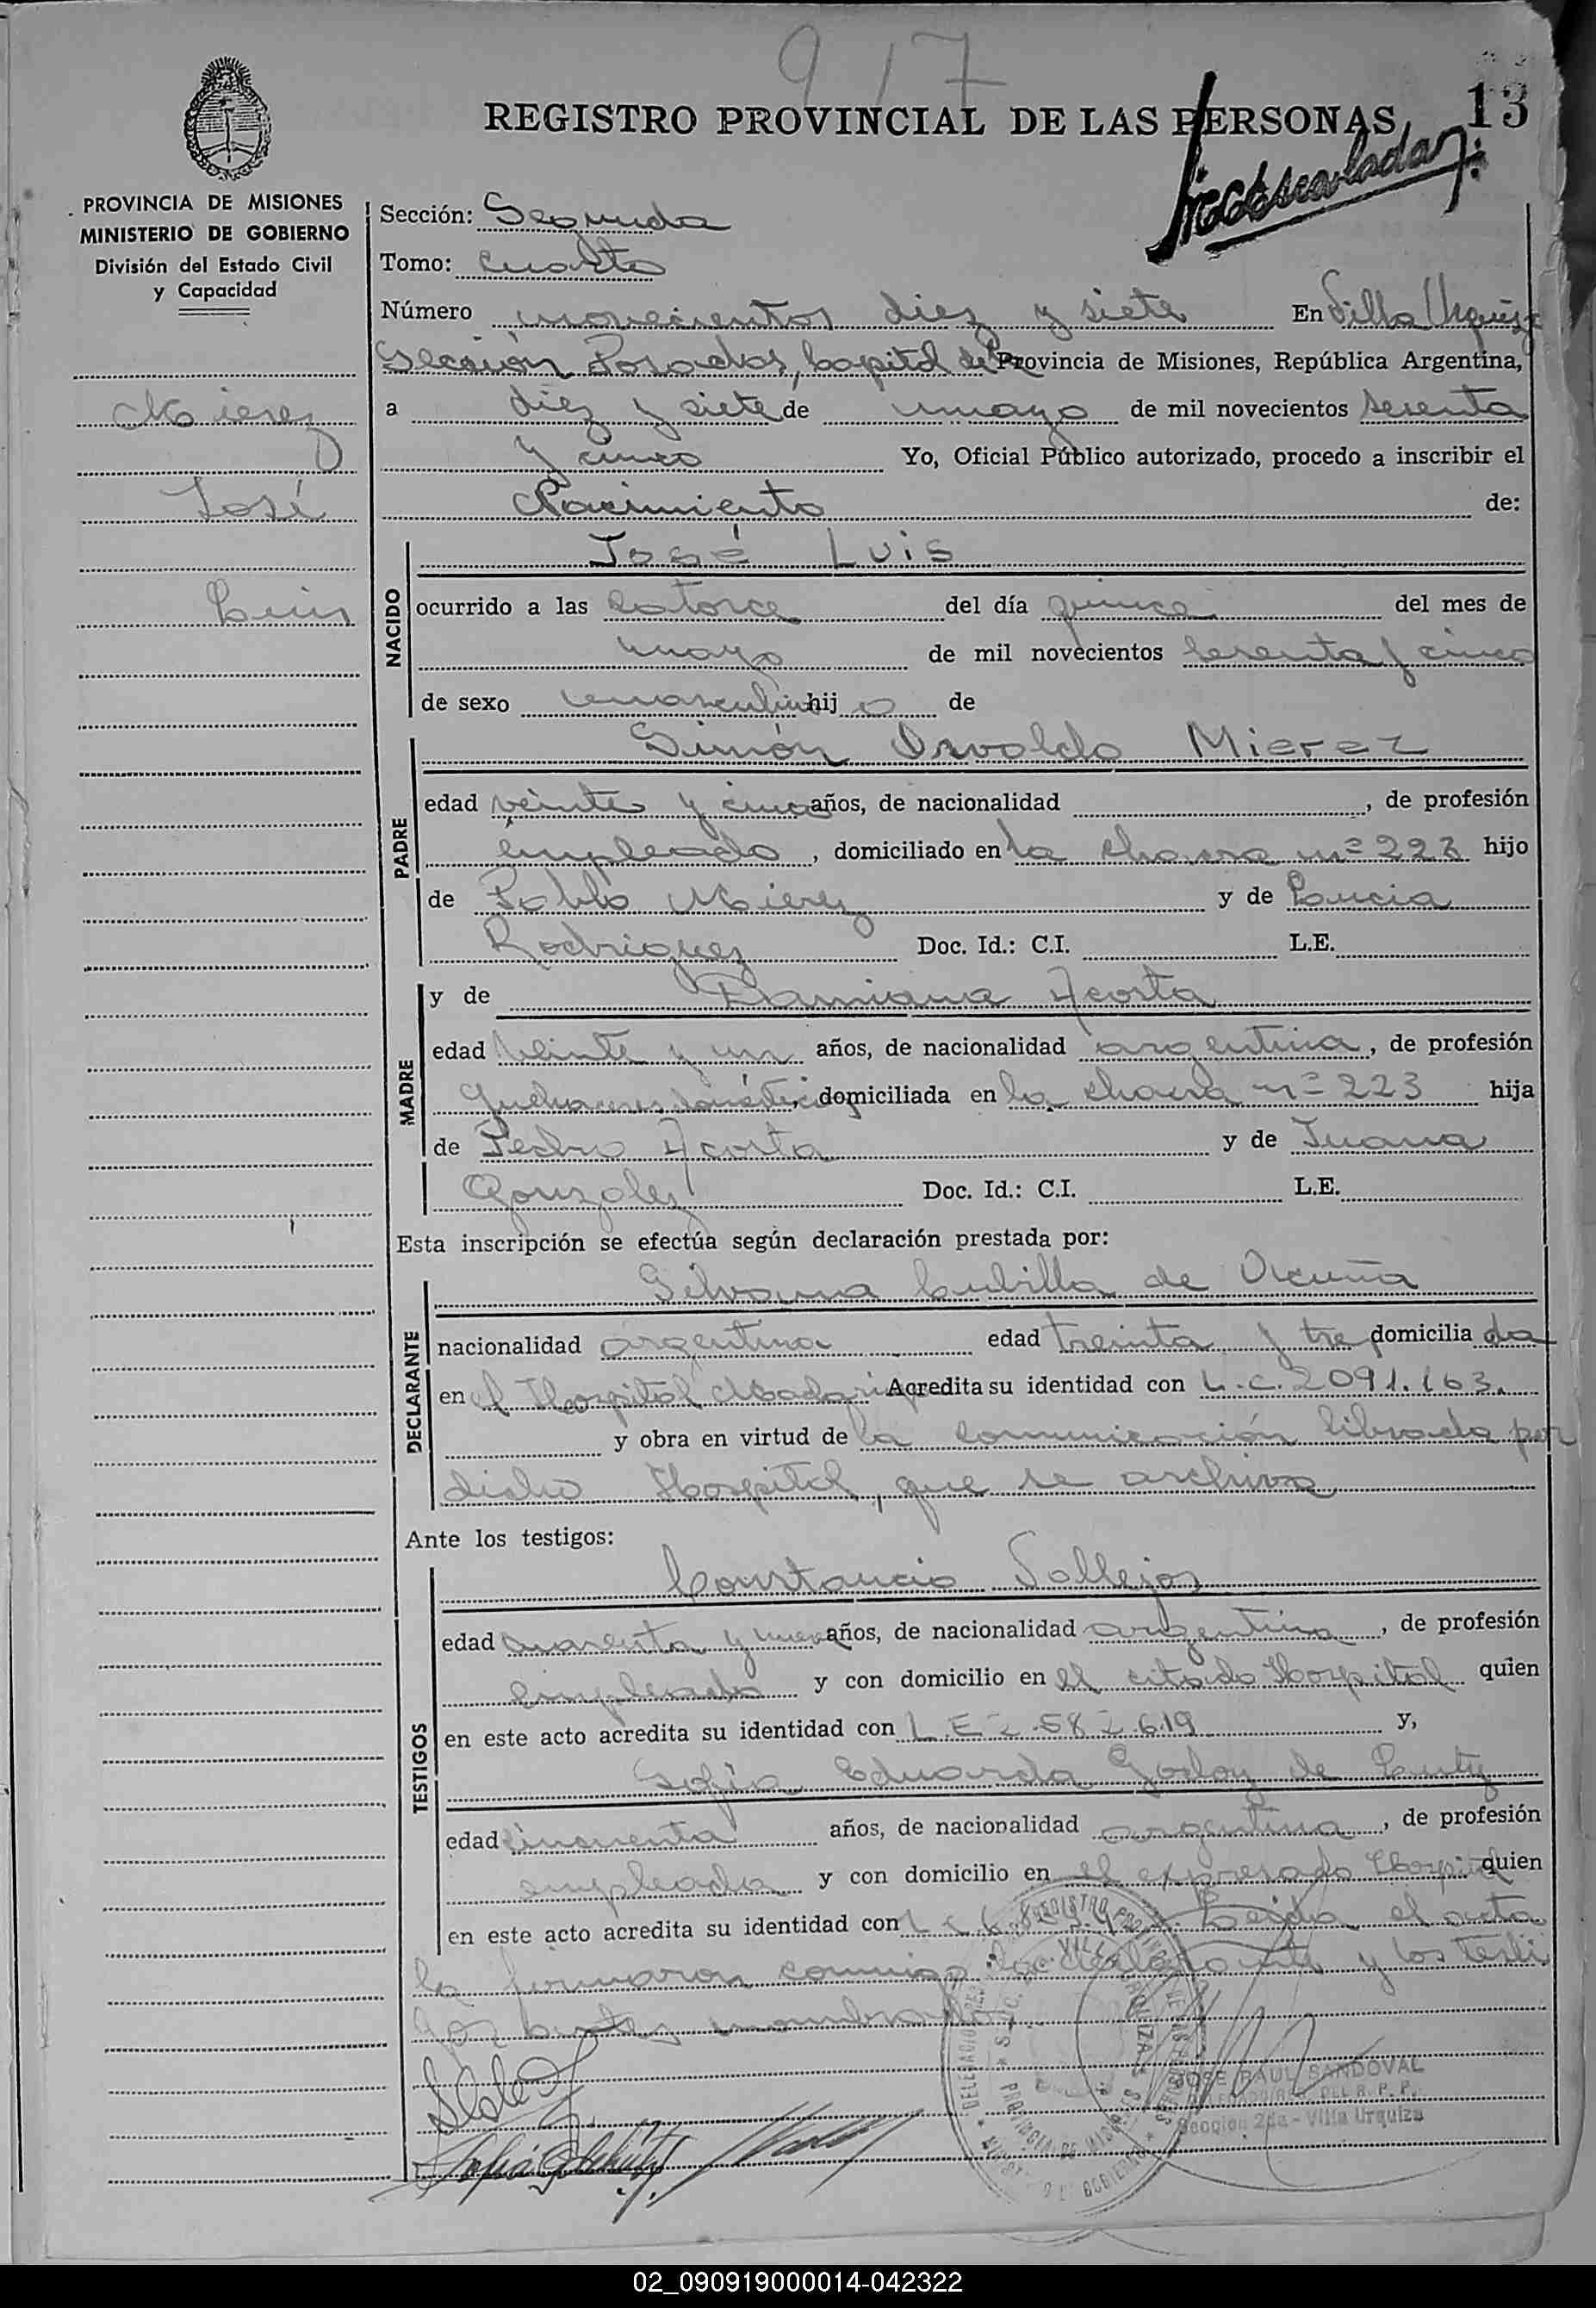 917
REGISTRO PROVINCIAL DE LAS PERSONAS
13
PROVINCIA DE MISIONES
MINISTERIO DE GOBIERNO
División del Estado Civil
y Capacidad
Mierez
José
Luis
Sección: Segunda
Tomo: Cuarto
Número novecientos diez y siete En Villa Urquiza
Sección Posadas, Capital de la Provincia de Misiones, República Argentina,
a diez y siete de mayo de mil novecientos sesenta
y cinco Yo, Oficial Público autorizado, procedo a inscribir el
Nacimiento de:
NACIDO
José Luis
ocurrido a las catorce del día quince del mes de
mayo de mil novecientos sesenta y cinco
de sexo masculino hij o de
PADRE
Simón Osvaldo Mierez
edad veinte y cinco años, de nacionalidad , de profesión
empleado , domiciliado en la chacra nº 223 hijo
de Pablo Mierez y de Lucia
Rodriguez Doc. Id.: C.I. L.E.
MADRE
y de Damiana Acosta
edad veinte y un años, de nacionalidad argentina, de profesión
quehaceres domésticos, domiciliada en la chacra nº 223 hija
de Pedro Acosta y de Juana
Gonzalez Doc. Id.: C.I. L.E.
Esta inscripción se efectúa según declaración prestada por:
DECLARANTE
Silvana Cubilla de Vicuña
nacionalidad argentina edad treinta y tre domicilia da
en el Hospital Madariaga Acredita su identidad con L.C. 2091.163.
y obra en virtud de la comunicación librada por
dicho Hospital, que se archiva
Ante los testigos:
TESTIGOS
Constancio Vallejos
edad cuarenta y nueve años, de nacionalidad argentina, de profesión
empleado y con domicilio en el citado Hospital quien
en este acto acredita su identidad con L.E 2.582.619 y,
Sofia Eduarda Godoy de
edad cincuenta años, de nacionalidad argentina, de profesión
empleada y con domicilio en el expresado Hospital quien
en este acto acredita su identidad con L C Leida el acta
la firmaron conmigo la declarante y los testi
gos antes nombrados
JOSE RAUL SANDOVAL
DEL R. P. P.
Sección 2da - Villa Urquiza
02_090919000014-042322